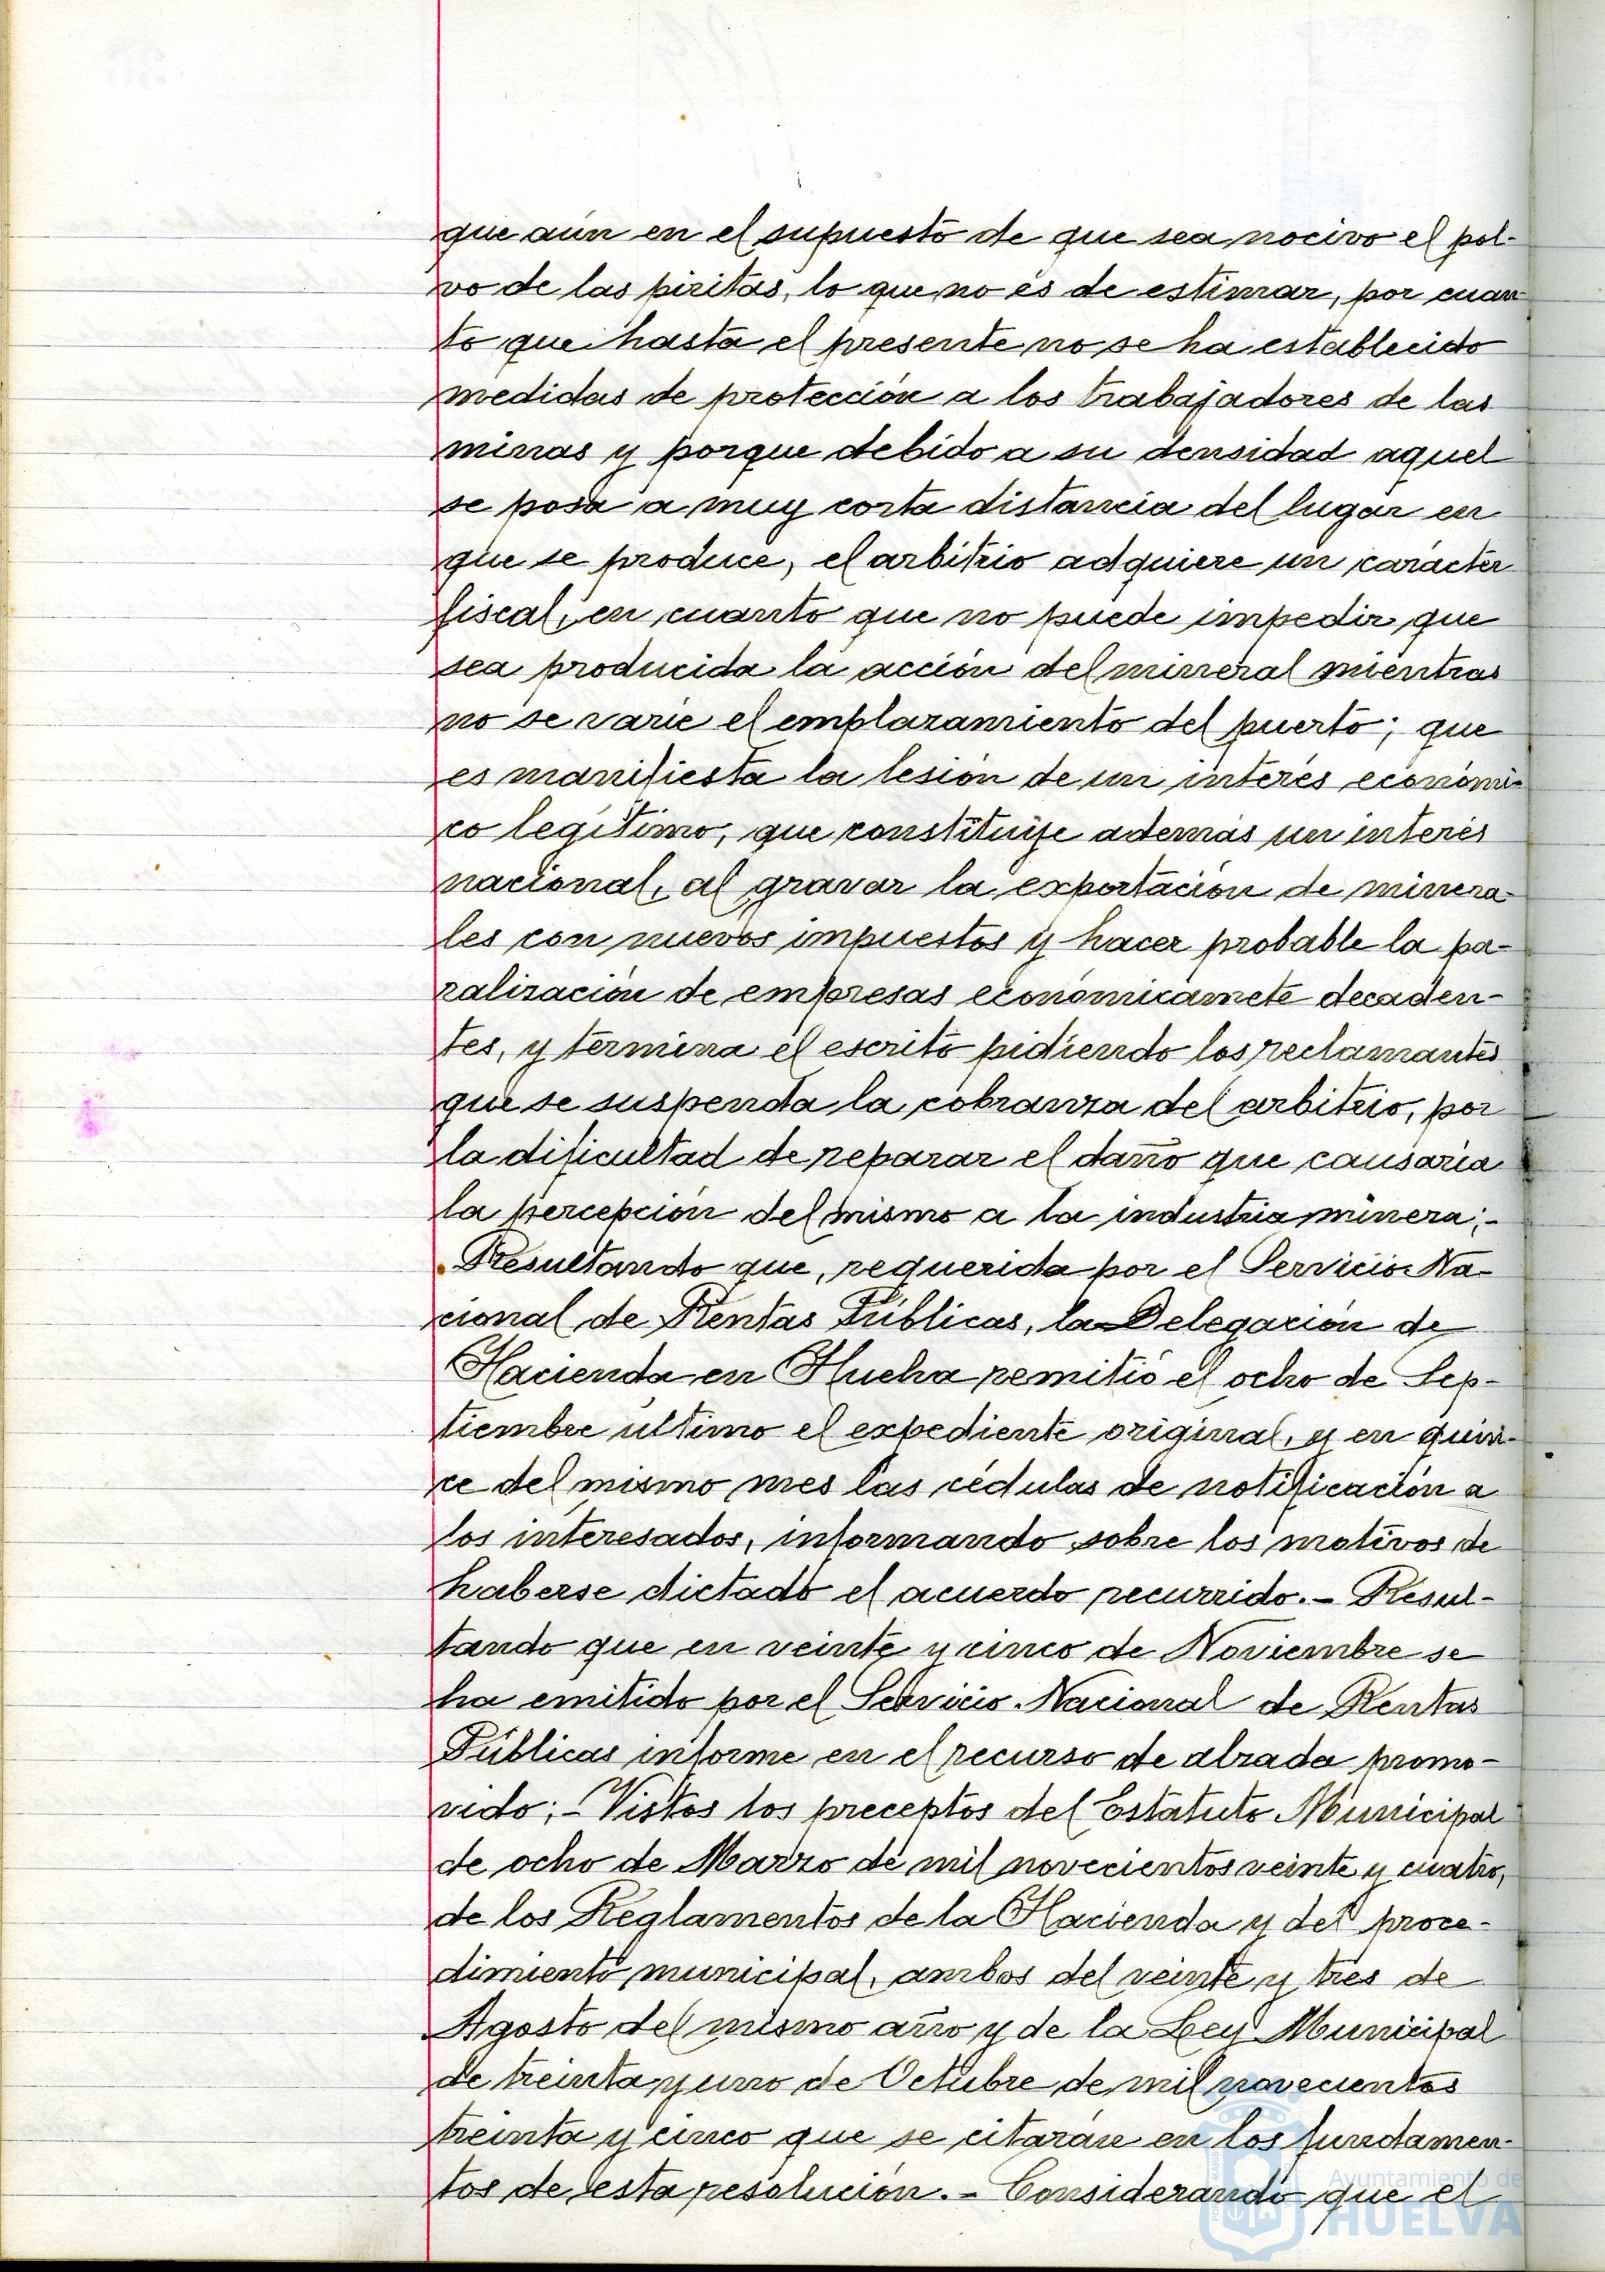 que aún en el supuesto de que sea nocivo el pol-
vo de las piritas, lo que no és de estimar, por cuan-
to que hasta el presente no se ha establecido
medidas de protección a los trabajadores de las
minas y porque debido a su densidad aquel
se posa a muy corta distancia del lugar en
que se produce, el arbitrio adquiere un carácter
fiscal, en cuanto que no puede impedir que
sea producida la acción del mineral mientras
no se varíe el emplazamiento del puerto; que
es manifiesta la lesión de un interés económi-
co legítimo, que constituye además un interés
nacional, al gravar la exportación de minera-
les con nuevos impuestos y hacer probable la pa-
ralización de empresas económicamete decaden-
tes, y termina el escrito pidiendo los reclamantes
que se suspenda la cobranza del arbitrio, por
la dificultad de reparar el daño que causaría
la percepción del mismo a la industria minera;-
Resultando que, requerida por el Servicio Na-
cional de Rentas Públicas, la Delegación de
Hacienda en Huelva remitió el ocho de Sep-
tiembre último el expediente original, y en quin-
ce del mismo mes las cédulas de notificación a
los interesados, informando sobre los motivos de
haberse dictado el acuerdo recurrido.- Resul-
tando que en veinte y cinco de Noviembre se
ha emitido por el Servicio Nacional de Rentas
Públicas informe en el recurso de alzada promo-
vido;- Vistos los preceptos del Estatuto Municipal
de ocho de Marzo de mil novecientos veinte y cuatro,
de los Reglamentos de la Hacienda y del proce-
dimiento municipal, ambos del veinte y tres de
Agosto del mismo año y de la Ley Municipal
de treinta y uno de Octubre de mil novecientos
treinta y cinco que se citarán en los fundamen-
tos de esta resolución.- Considerando que el
Ayuntamiento de
HUELVA